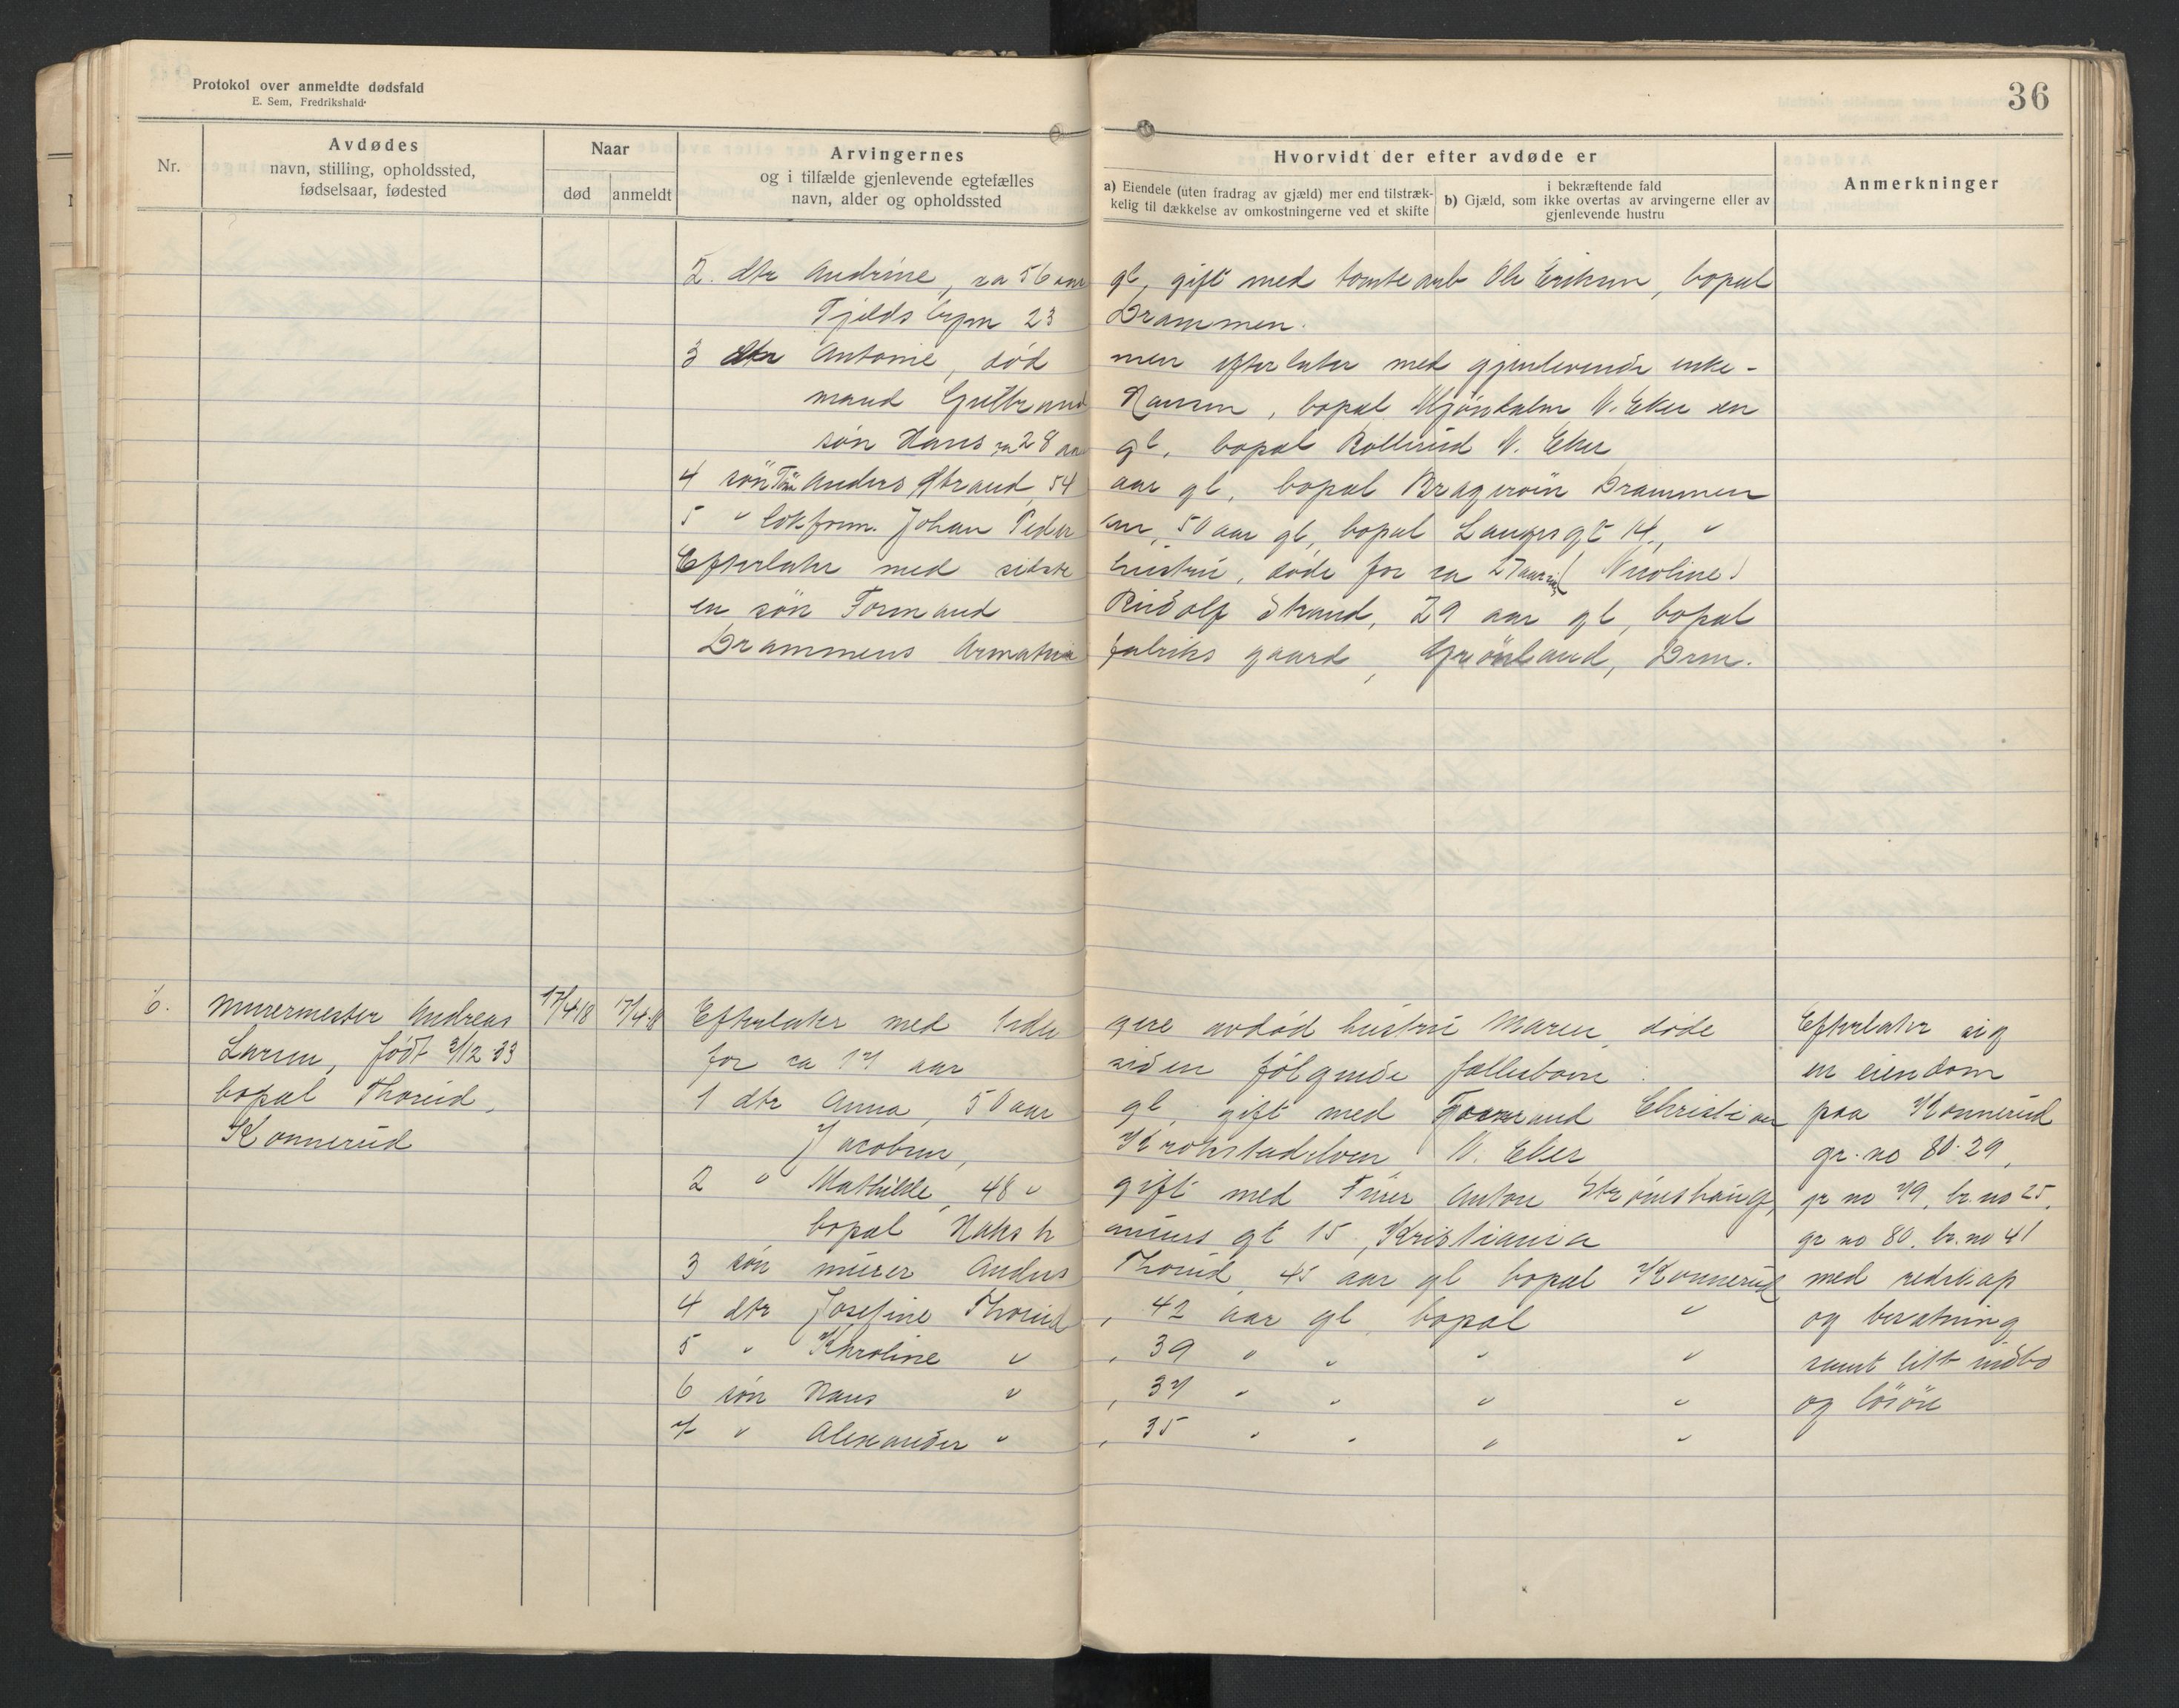 Protokol over anmeldte dødsfald
E. Sem, Fredrikshald.
36
Nr.
Avdødes
navn, stilling, opholdssted,
fødselsaar, fødested
Naar
død
anmeldt
Arvingernes
og i tilfælde gjenlevende egtefælles
navn, alder og opholdssted
Hvorvidt der efter avdøde er
a) Eiendele (uten fradrag av gjæld) mer end tilstræk-
kelig til dækkelse av omkostningerne ved et skifte
i bekræftende fald
b) Gjæld, som ikke overtas av arvingerne eller av
gjenlevende hustru
Anmerkninger
2. dtr Andrine, ca 56 aar gl, gift med tomtearb Ole Eriksen, bopæl
Tjelds 23 Drammen.
3 dtr Antonie, død men efterlater med gjenlevende enke-
mand Gulbrand Hansen, bopæl Mjöndalen N. Eker en
søn Hans ca 28 aar gl, bopæl Rollerud N. Eker
4 søn Anders Strand, 54 aar gl, bopæl Bragerøen Drammen
5 " lokform. Johan Pedersen, 50 aar gl, bopæl Langes gt 14, "
Efterlater med sidste hustru, døde for ca 27 aar siden (Nicoline)
en søn Formand Rudolf Strand, 29 aar gl, bopæl
Drammens Armatur fabriks gaard, Grønland, Drm.
6. Murermester Andreas 17/4 18 17/4 18 Efterlater med tidligere avdød hustru Maren, døde Efterlater sig
Larsen, født 2/12 33 for ca 17 aar siden følgende fællesbarn: en eiendom
bopæl Thorud, 1 dtr Anna, 50 aar gl, gift med Formand Christian paa Konnerud
Konnerud Jacobsen, Krokstadelven N. Eker gr. no 80. 29,
2 " Mathilde, 48 " gift med Murer Anton Strømshaug, gr no 79, br. no 25,
bopæl Haksh auens gt 15, Kristiania gr no 80, br. no 41
3 søn murer Anders Thorud, 45 aar gl bopæl Konnerud med redskap
4 dtr Josefine Thorud, 42 aar gl, bopæl " og besætning
5 " Karoline ", 39 " " " " samt litt indbo
6 søn Hans ", 37 " " " " og løsøre
7 " Alexander ", 35 " " " "